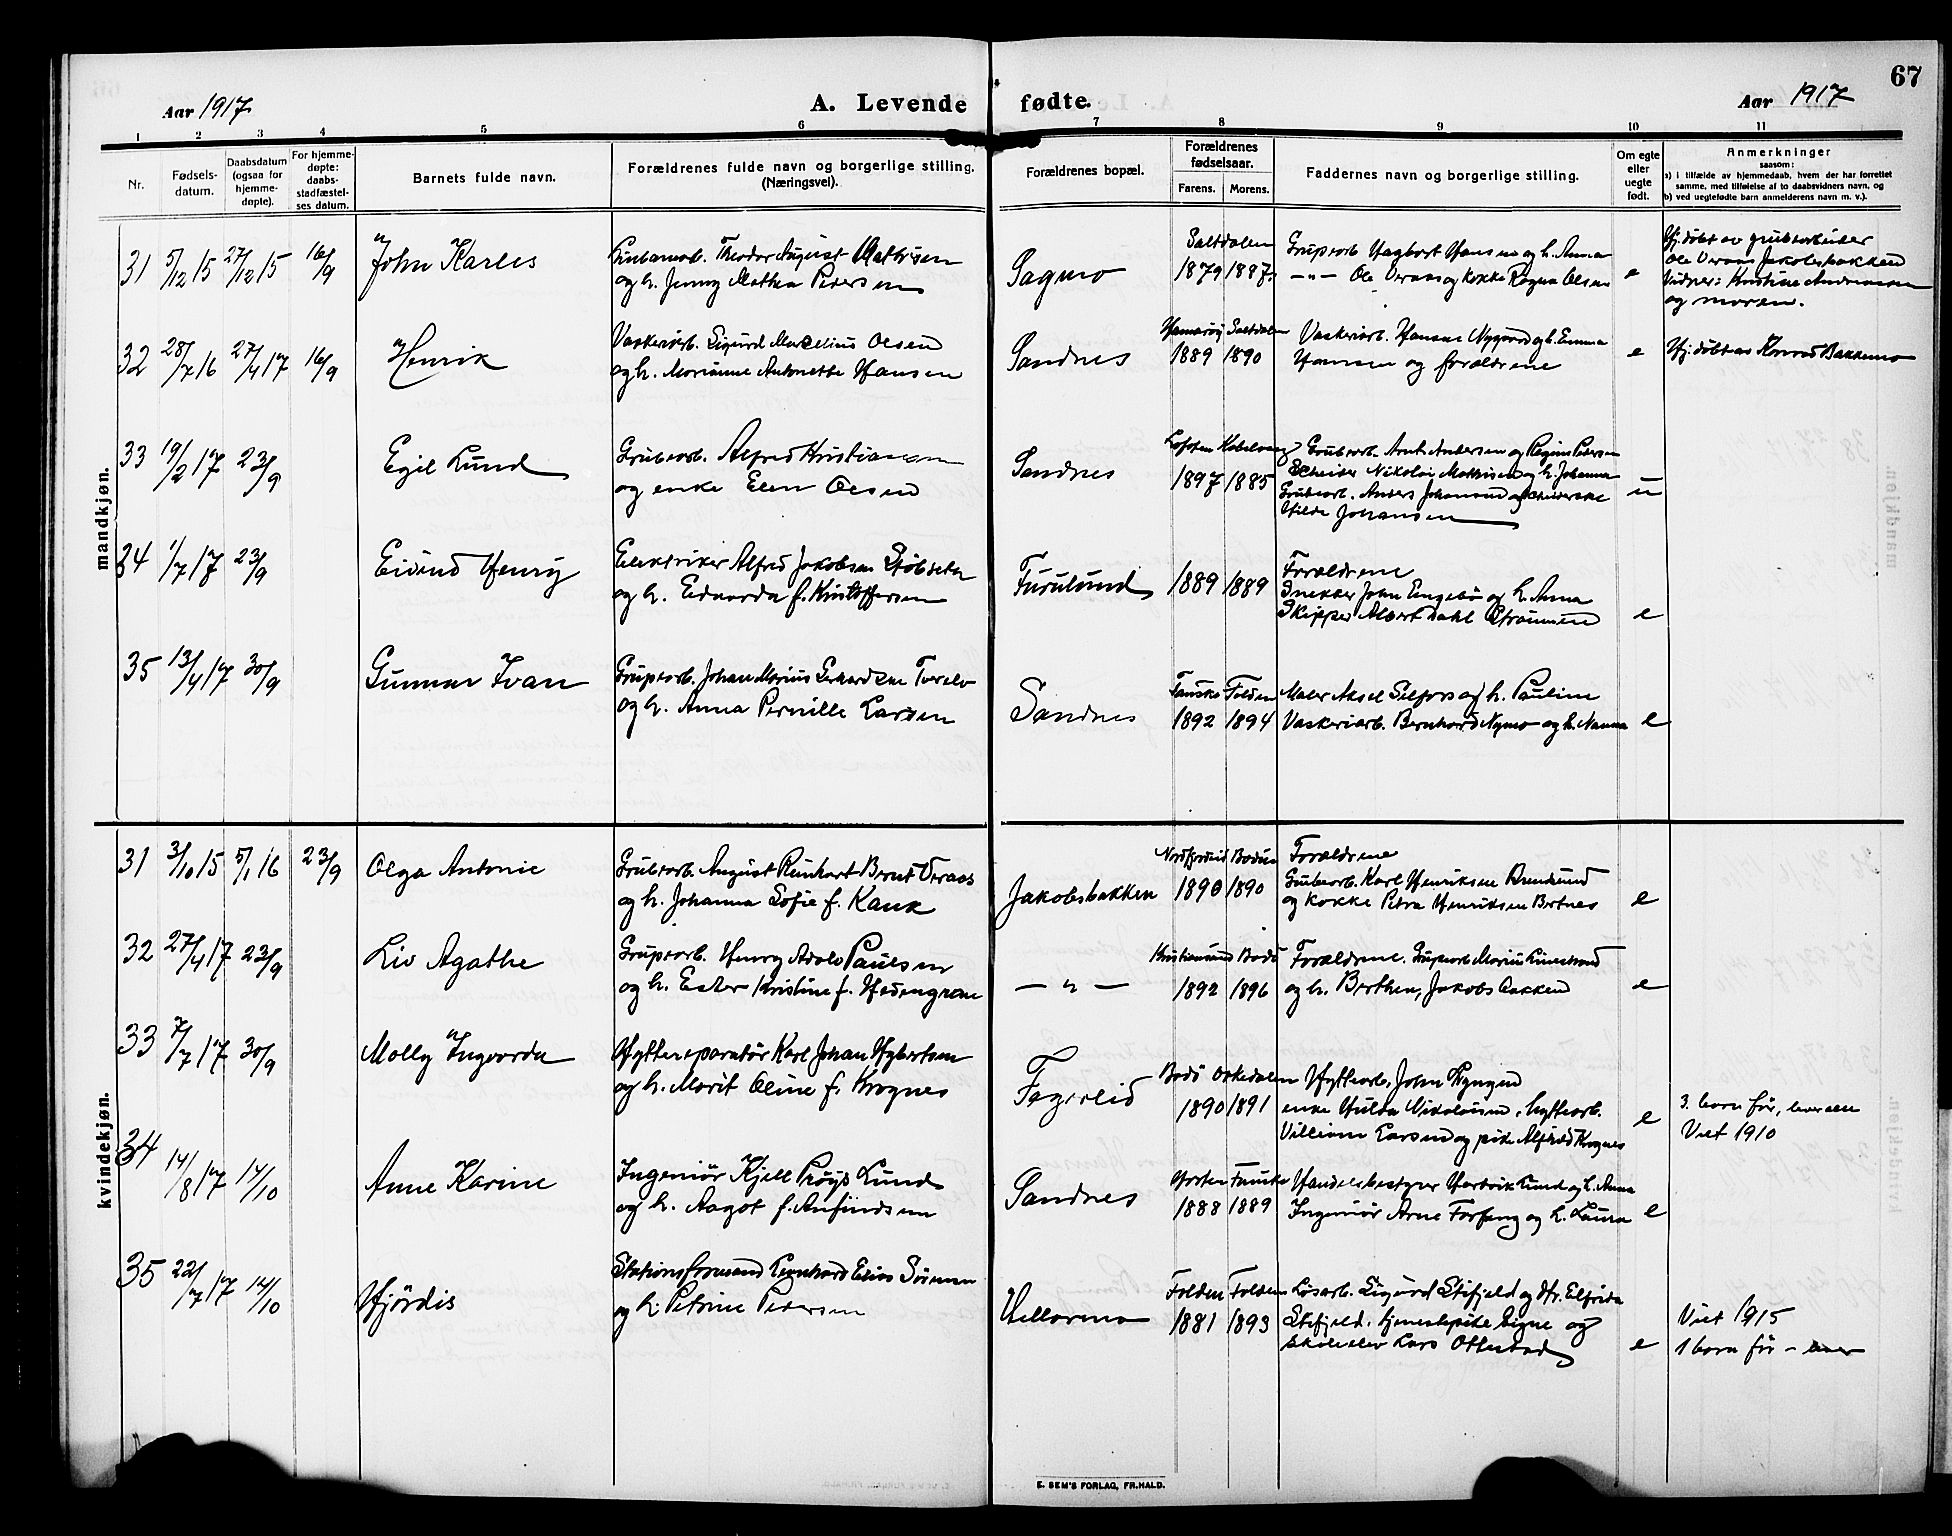 67
Aar 1917
A. Levende fødte.
Aar 1917
1 2 3 4 5 6 7 8 9 10 11
Nr.
Fødsels-
datum.
Daabsdatum
(ogsaa for
hjemme-
døpte).
For hjemme-
døpte:
daabs-
stadfæstel-
ses datum.
Barnets fulde navn.
Forældrenes fulde navn og borgerlige stilling.
(Næringsvei).
Forældrenes bopæl.
Forældrenes
fødselsaar.
Farens. Morens.
Faddernes navn og borgerlige stilling.
Om egte
eller
uegte
født.
Anmerkninger
saasom:
a) i tilfælde av hjemmedaab, hvem der har forrettet
samme, med tilføielse af to daabsvidners navn, og
b) ved uegtefødte barn anmelderens navn m. v.).
mandkjøn.
31 5/12 15 27/12 15 16/9 John Karles
Theodor August Mathisen
og h. Jenny Mathea Pedersen
Sagmo
Saltdalen
1879 1887
Gruparb. Hagbart Hansen og h. Anna
— " — Ole Veraas og kokke Ragna Olsen
e
Hj. døbt av grubearbeider
Ole Veraas Jakobsbakken
Vidner: Kristine Andreassen
og moren.
32 28/7 16 27/4 17 16/9 Henrik
Vaskeriarb. Sigurd Marselius Olsen
og h. Marianne Antonette Hansen
Sandnes
Hamarøy Saltdalen
1889 1890
Vaskeriarb. Hansen Nygaard og h. Emma
Hansen og forældrene
e
Hj. døbt av Konrad Bakkemo
33 19/2 17 23/9 Egil Lund
Grubearb. Alfred Kristiansen
og enke Elen Olsen
Sandnes
Lofoten Kabelvaag
1897 1885
Grubearb. Arnt Andersen og Regine Petersen
Nikolai Mathisen og h. Johanna
Grubearb. Anders Johansen og
Hilda Johansen
u
34 1/7 17 23/9 Eivind Henry
Elektriker Alfred Jakobsen Støbseth
og h. Edvarda f. Kristoffersen
Furulund
1889 1889
Forældrene
Snekker John Engebø og h. Anna
Skipper Albert Dahl Straumen
e
35 13/4 17 30/9 Gunnar Ivan
Gruparb. Johan Marius Gerhardsen Tverelv
og h. Anna Pernille Larsen
Sandnes
Fauske Folden
1892 1894
Maler Aksel Selfors og h. Pauline
Vaskeriarb. Bernhard Nymo og h. Nanna
e
kvindekjøn.
31 3/10 15 5/1 16 23/9 Olga Antonie
Grubearb. August Reinhart Bernt Veraas
og h. Johanna Sofie f. Kank
Jakobsbakken
Nordfjordeid Bodin
1890 1890
Forældrene
Grubearb. Karl Henriksen Brendsund
og kokke Petra Henriksen Bertnes
e
32 27/4 17 23/9 Liv Agathe
Gruparb. Henry Adolv Paulsen
og h. Ester Kristine f. Hedengrene
— " —
Kristiansund Bodø
1892 1896
Forældrene. Gruparb. Marius Linestrand
og h. Berthea, Jakobsbakken
e
33 7/7 17 30/9 Molly Ingvarda
Hyttereparatør Karl Johan Hybertsen
og h. Marit Oline f. Krognes
Fagerlid
Bodø Orkedalen
1890 1891
Hyttearb. John Lyngen
enke Hulda Nikolaisen, hyttearb.
Villiam Larsen og pike Alfhild Krognes
e
3. born før, lever alle
Viet 1910
34 14/8 17 14/10 Anne Karine
Ingeniør Kjell Prøys Lund
og h. Aagot f. Anfindsen
Sandnes
Horten Fauske
1888 1889
Handelsbestyrer Hartvik Lund og h. Anna
Ingeniør Arne Forfang og h. Laura
e
35 22/7 17 14/10 Hjørdis
Stationsformand Leonhard Elias Sørensen
og h. Petrine Pedersen
Hellarmo
Folden Folden
1881 1893
Løsarb. Sigurd Stifjeld og fr. Elfrida
Stifjeld. tjenestepike Signe og
skoleelev Lars Ottestad
e
Viet 1915
1 born før – lever
E. SEM'S FORLAG, FR.HALD.